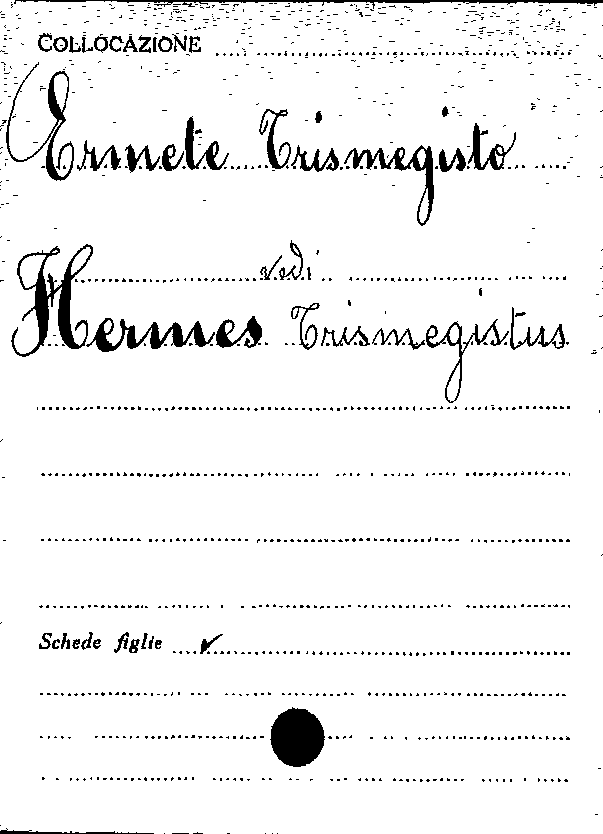 COLLOCAZIONE
Ermete Trismegisto
vedi
Hermes Trismegistus
Schede figlie ✓